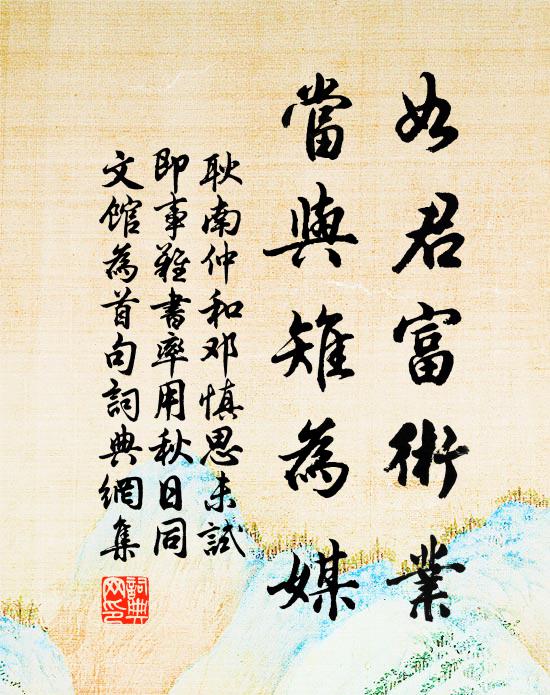 如君富術業
當與雉為媒
耿南仲和邓慎思未試
即事雜書率用秋日同
文館為首句詞典網集
詞典网印